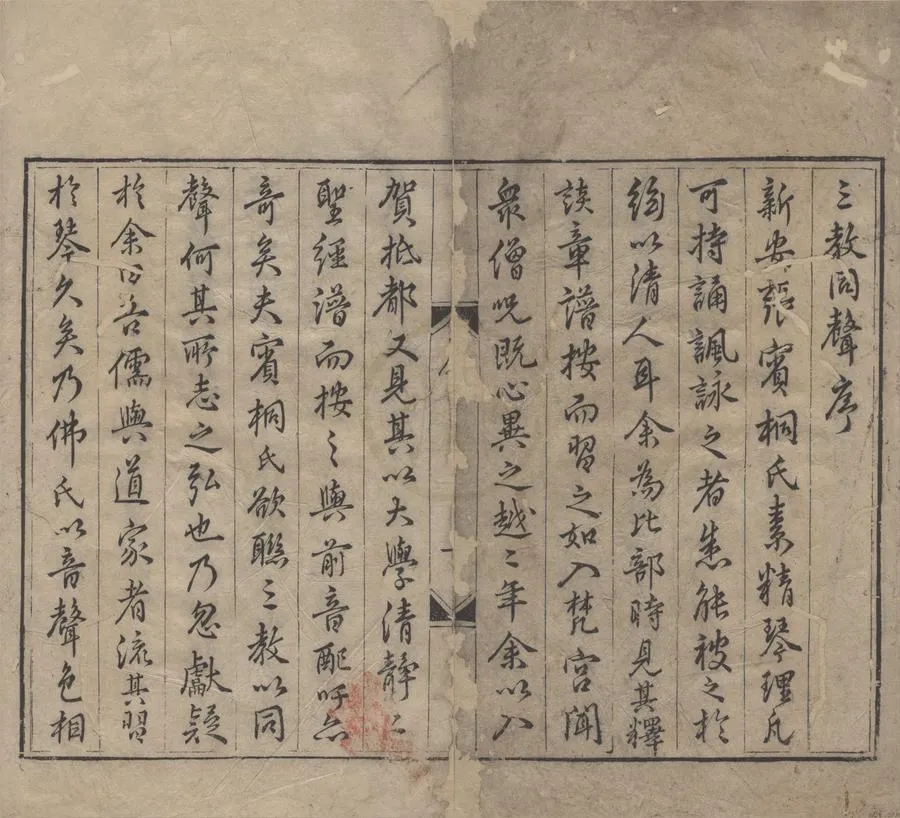 三教同聲序
新安張賓桐氏素精琴理凡
可持誦諷詠之者悉能被之於
絲以清人耳余為比部時見其釋
談章譜按而習之如入梵宮聞
衆僧呪既心異之越二年余以入
賀抵都又見其以大學清靜二
聖經譜而按之與前音配吁亦
奇矣夫賓桐氏欲聯三教以同
聲何其所志之弘也乃忽獻疑
於余曰吾儒與道家者流其習
於琴久矣乃佛氏以音聲色相